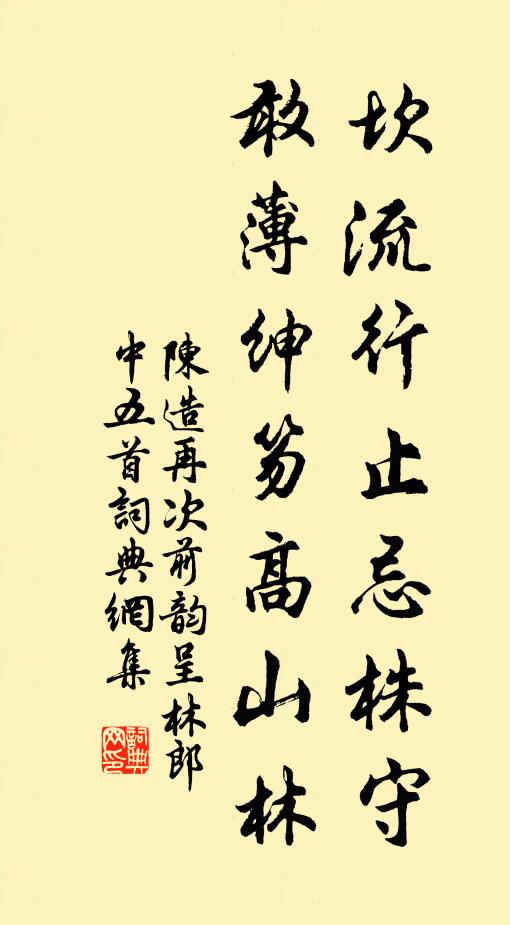 坎流行止忌株守
敢薄紳笏高山林
陳造再次前韵呈林郎
中五首詞典網集
詞典網印